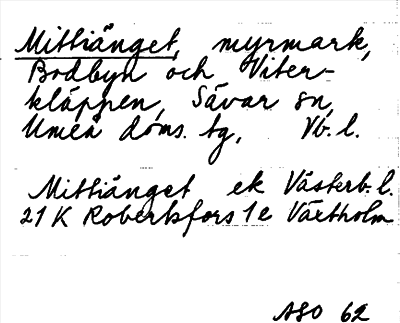 Mittiänget, myrmark,
Bodbyn och Viter-
kläppen, Sävar sn,
Umeå doms. tg, Vb. l.
Mittiänget ek Västerb. l.
21 K Robertsfors 1 e Växtholm
ASO 62